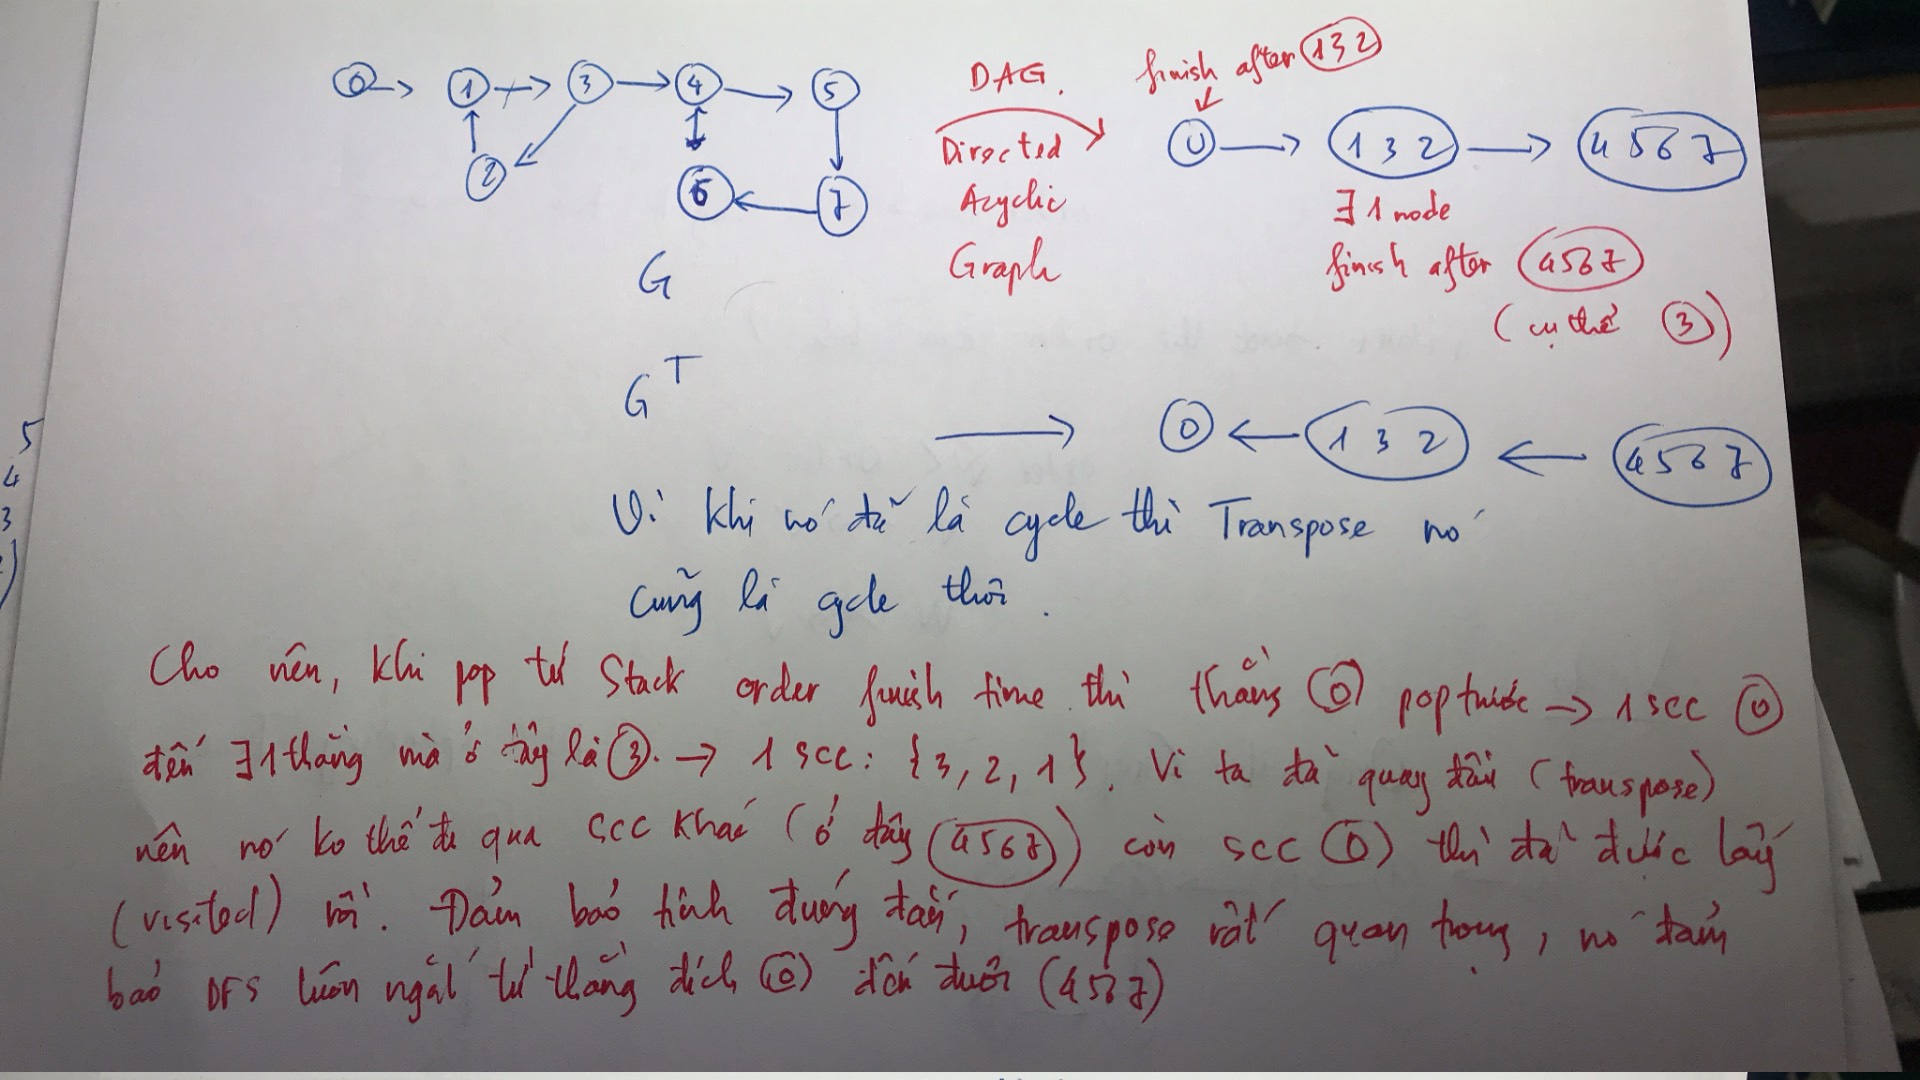 0 → 1 → 3 → 4 → 5
2
6 ← 7
G
DAG.
Directed
Acyclic
Graph
finish after 132
0 → 132 → 4567
∃ 1 node
finish after 4567
(cụ thể 3)
G^T
→ 0 ← 132 ← 4567
Vì khi nó đã là cycle thì Transpose nó
cũng là cycle thôi.
Cho nên, khi pop từ Stack order finish time thì thằng 0 pop trước → 1 SCC 0
đến ∃ 1 thằng mà ở đây là 3. → 1 SCC: {3, 2, 1}. Vì ta đã quay đầu (transpose)
nên nó ko thể đi qua SCC khác (ở đây 4567) còn SCC 0 thì đã được lấy
(visited) rồi. Đảm bảo tính đúng đắn, transpose rất quan trọng, nó đảm
bảo DFS luôn ngắt từ thằng đích 0 đến đuôi (4567)
5
4
3